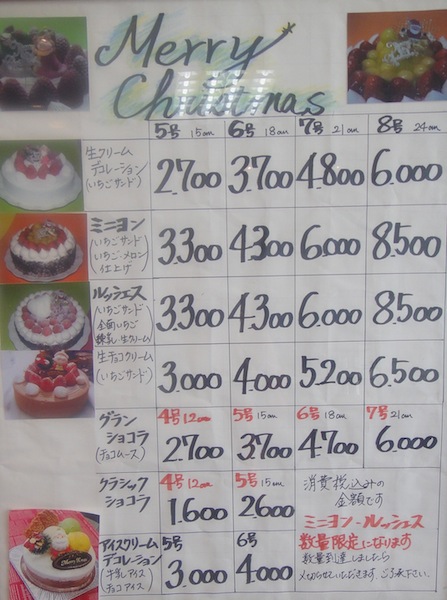 Merry
Christmas
5号 15cm 6号 18cm 7号 21cm 8号 24cm
生クリーム
デコレーション
(いちごサンド)
2.700 3.700 4.800 6.000
ミニヨン
(いちごサンド
いちご・メロン
仕上げ)
3.300 4.300 6.000 8.500
ルッシェス
(いちごサンド
全面いちご
練乳生クリーム)
3.300 4.300 6.000 8.500
生チョコクリーム
(いちごサンド)
3.000 4.000 5.200 6.500
グラン
ショコラ
(チョコムース)
4号 12cm 5号 15cm 6号 18cm 7号 21cm
2.700 3.700 4.700 6.000
クラシック
ショコラ
4号 12cm 5号 15cm
1.600 2.600
消費税込みの
金額です
ミニヨン・ルッシェス
数量限定になります
数量到達しましたら
〆切らせていただきます。ご了承下さい。
アイスクリーム
デコレーション
(牛乳アイス
チョコアイス)
5号 6号
3.000 4.000